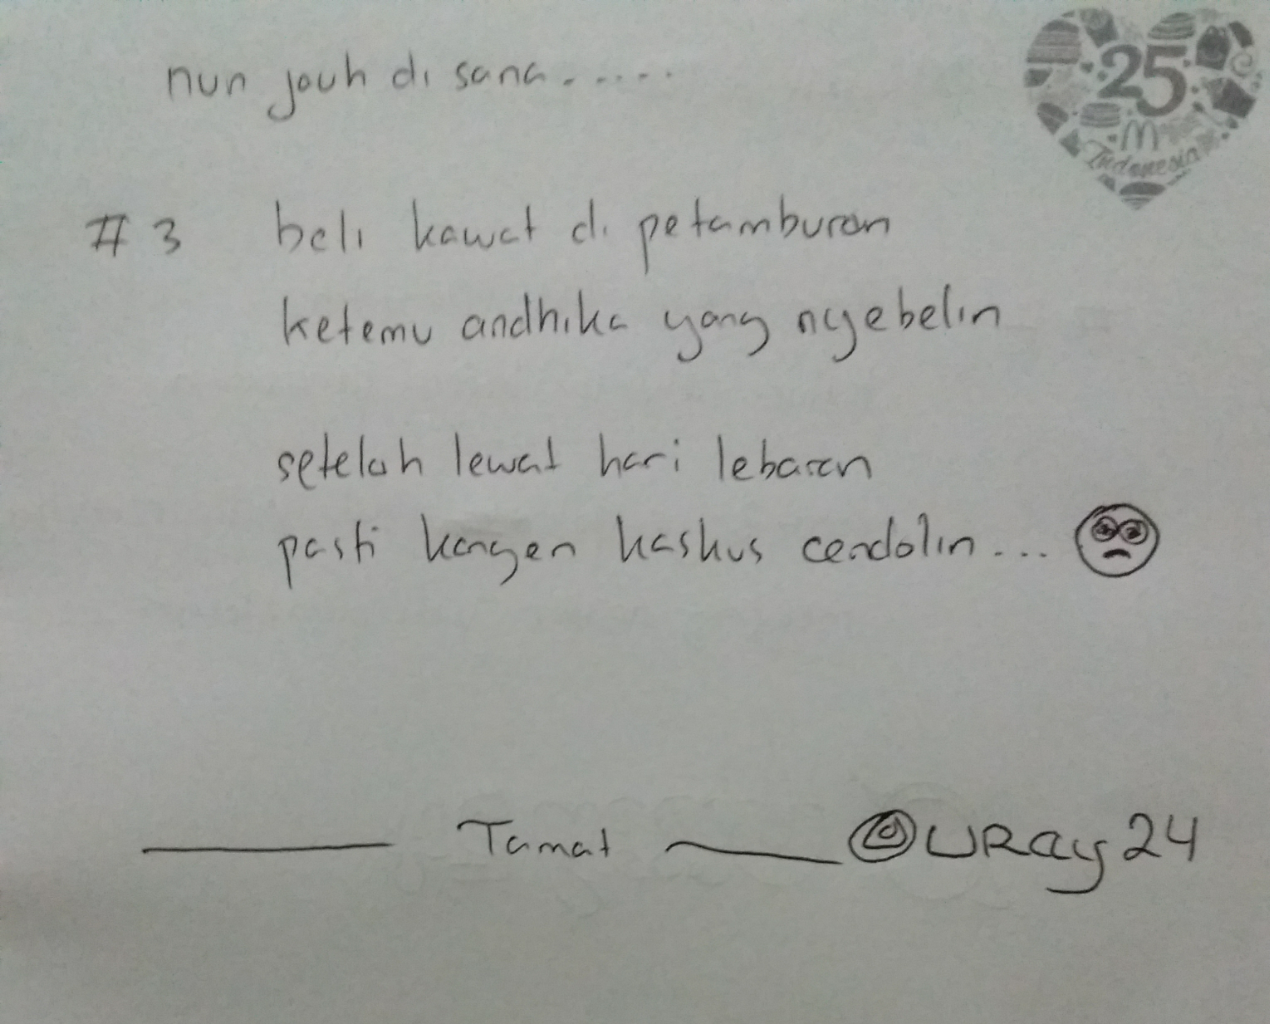 nun jauh di sana......
25
M
Indonesia
# 3 beli kawat di petamburan
ketemu andhika yang nyebelin
setelah lewat hari lebaran
pasti kangen kaskus cendolin...
Tamat @URay24